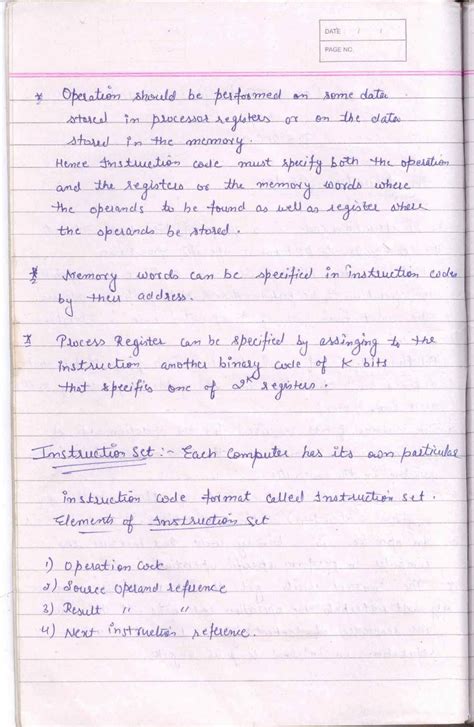 DATE / /
PAGE NO.
* Operation should be performed on some data
stored in processor registers or on the data
stored in the memory.
Hence Instruction code must specify both the operation
and the registers or the memory words where
the operands to be found as well as register where
the operands be stored.
* Memory words can be specified in Instruction codes
by their address.
* Process Register can be specified by assinging to the
instruction another binary code of K bits
that specifies one of 2^K registers.
Instruction set :- Each Computer has its own particular
instruction code format called Instruction set.
Elements of Instruction Set
1) Operation Cock
2) Source Operand reference
3) Result " "
4) Next instruction reference.